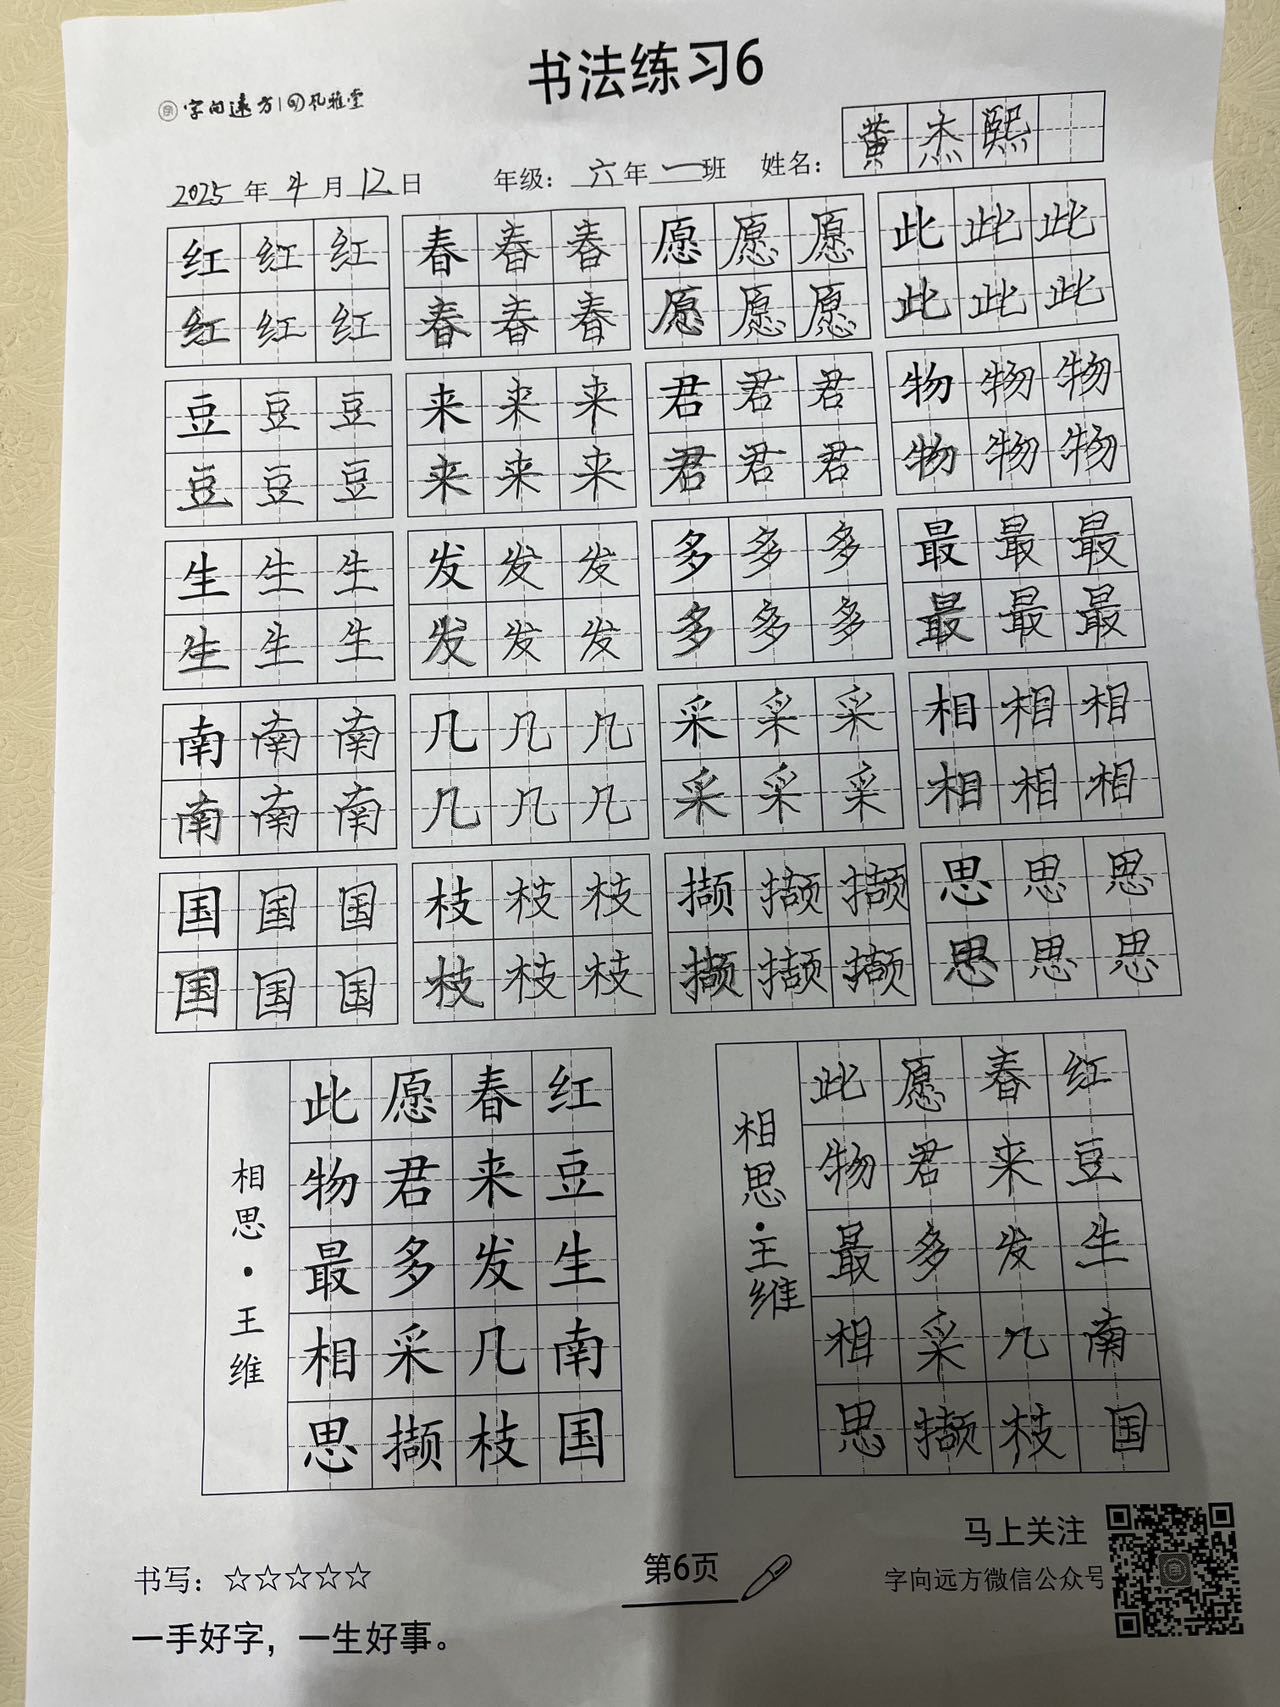 书法练习6
字向远方|回风雅堂
黄杰熙
2025年4月12日 年级：六年一班 姓名：
红红红 春春春 愿愿愿 此此此
红红红 春春春 愿愿愿 此此此
豆豆豆 来来来 君君君 物物物
豆豆豆 来来来 君君君 物物物
生生生 发发发 多多多 最最最
生生生 发发发 多多多 最最最
南南南 几几几 采采采 相相相
南南南 几几几 采采采 相相相
国国国 枝枝枝 撷撷撷 思思思
国国国 枝枝枝 撷撷撷 思思思
红豆生南国
春来发几枝
愿君多采撷
此物最相思
相思·王维
红豆生南国
春来发几枝
愿君多采撷
此物最相思
相思·王维
书写：☆☆☆☆☆
一手好字，一生好事。
第6页
马上关注
字向远方微信公众号